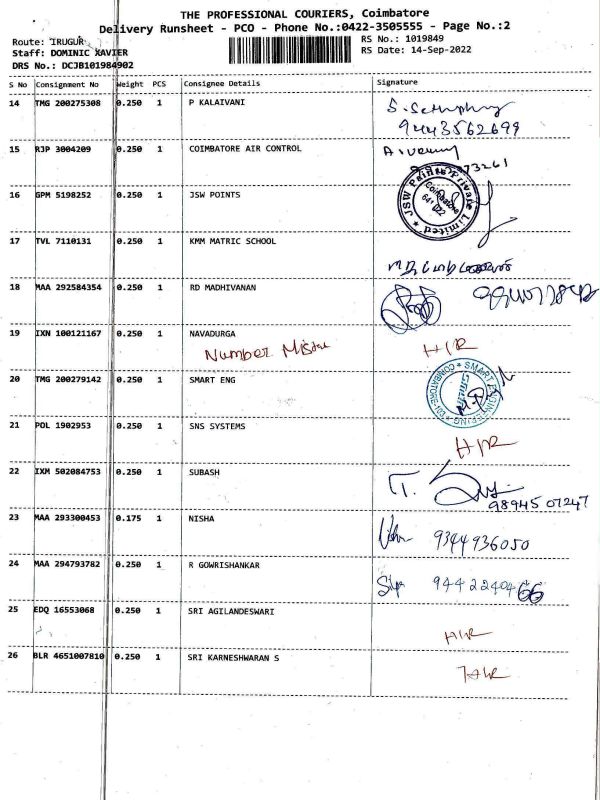 THE PROFESSIONAL COURIERS, Coimbatore
Delivery Runsheet - PCO - Phone No.:0422-3505555 - Page No.:2
Route: IRUGUR
RS No.: 1019849
Staff: DOMINIC XAVIER
RS Date: 14-Sep-2022
DRS No.: DCJB101984902
S No Consignment No Weight PCS Consignee Details Signature
14 TMG 200275308 0.250 1 P KALAIVANI
9443562699
15 RJP 3004209 0.250 1 COIMBATORE AIR CONTROL
73261
16 GPM 5198252 0.250 1 JSW POINTS
JSW Paints Private Limited
Coimbatore
641 022
17 TVL 7110131 0.250 1 KMM MATRIC SCHOOL
18 MAA 292584354 0.250 1 RD MADHIVANAN
19 IXN 100121167 0.250 1 NAVADURGA
Number
20 TMG 200279142 0.250 1 SMART ENG
21 POL 1902953 0.250 1 SNS SYSTEMS
22 IXM 502084753 0.250 1 SUBASH
T.
98945 07247
23 MAA 293300453 0.175 1 NISHA
9344936050
24 MAA 294793782 0.250 1 R GOWRISHANKAR
9442240466
25 EDQ 16553068 0.250 1 SRI AGILANDESWARI
26 BLR 4651007810 0.250 1 SRI KARNESHWARAN S